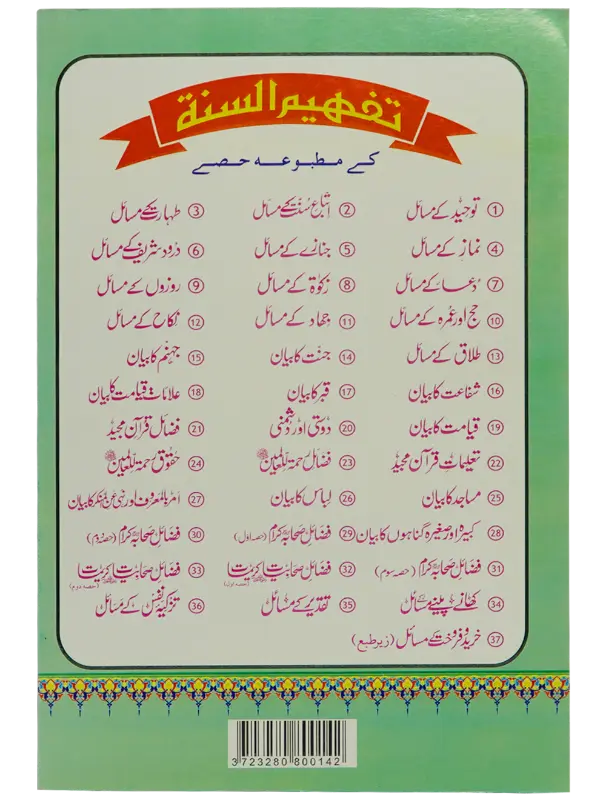 تفہیم السنۃ
کے مطبوعہ حصے
① توحید کے مسائل ② اتباع سنت کے مسائل ③ طہارت کے مسائل
④ نماز کے مسائل ⑤ جنازے کے مسائل ⑥ درود شریف کے مسائل
⑦ دعا کے مسائل ⑧ زکوٰۃ کے مسائل ⑨ روزوں کے مسائل
⑩ حج اور عمرہ کے مسائل ⑪ جہاد کے مسائل ⑫ نکاح کے مسائل
⑬ طلاق کے مسائل ⑭ جنت کا بیان ⑮ جہنم کا بیان
⑯ شفاعت کا بیان ⑰ قبر کا بیان ⑱ علاماتِ قیامت کا بیان
⑲ قیامت کا بیان ⑳ دوستی اور دشمنی ㉑ فضائل قرآن مجید
㉒ تعلیمات قرآن مجید ㉓ فضائل رحمۃ للعالمین ﷺ ㉔ حقوق رحمۃ للعالمین ﷺ
㉕ مساجد کا بیان ㉖ لباس کا بیان ㉗ امر بالمعروف اور نہی عن المنکر کا بیان
㉘ کبیرہ اور صغیرہ گناہوں کا بیان ㉙ فضائل صحابہ کرام (حصہ اول) ㉚ فضائل صحابہ کرام (حصہ دوم)
㉛ فضائل صحابہ کرام (حصہ سوم) ㉜ فضائل صحابیات (حصہ اول) ㉝ فضائل صحابیات (حصہ دوم)
㉞ کھانے پینے کے مسائل ㉟ تقدیر کے مسائل ㊱ تزکیہ نفس کے مسائل
㊲ خرید و فروخت کے مسائل (زیر طبع)
3723280800142